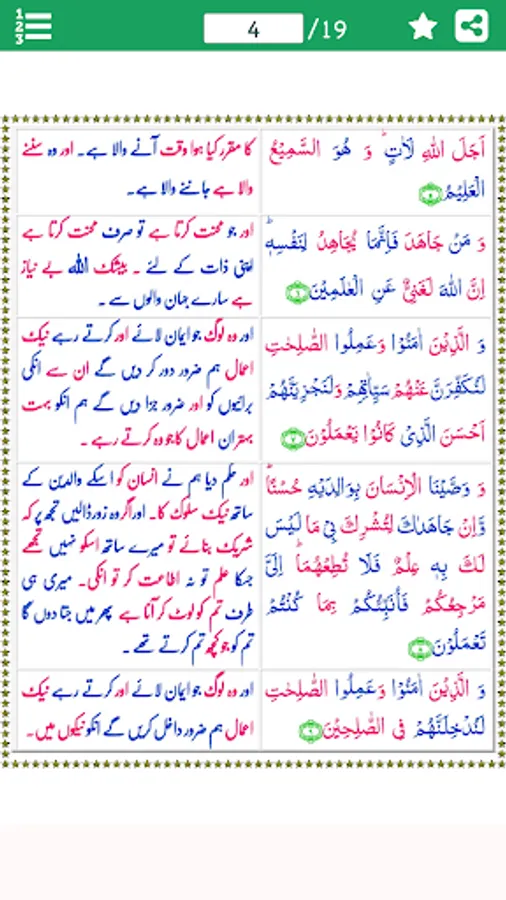 1
2
3
4 /19
اَجَلَ اللّٰهِ لَاٰتٍ ؕ وَ هُوَ السَّمِيْعُ
الْعَلِيْمُ ۵
کا مقرر کیا ہوا وقت آنے والا ہے۔ اور وہ سننے
والا ہے جاننے والا ہے۔
وَ مَنْ جَاهَدَ فَاِنَّمَا يُجَاهِدُ لِنَفْسِهٖ ؕ
اِنَّ اللّٰهَ لَغَنِيٌّ عَنِ الْعٰلَمِيْنَ ۶
اور جو محنت کرتا ہے تو صرف محنت کرتا ہے
اپنی ذات کے لئے ۔ بیشک اللہ بے نیاز
ہے سارے جہان والوں سے ۔
وَ الَّذِيْنَ اٰمَنُوْا وَعَمِلُوا الصّٰلِحٰتِ
لَنُكَفِّرَنَّ عَنْهُمْ سَيِّاٰتِهِمْ وَلَنَجْزِيَنَّهُمْ
اَحْسَنَ الَّذِيْ كَانُوْا يَعْمَلُوْنَ ۷
اور وہ لوگ جو ایمان لائے اور کرتے رہے نیک
اعمال ہم ضرور دور کر دیں گے ان سے انکی
برائیوں کو اور ضرور جزا دیں گے ہم انکو بہت
بہتر ان اعمال کا جو وہ کرتے رہے ۔
وَ وَصَّيْنَا الْاِنْسَانَ بِوَالِدَيْهِ حُسْنًا ؕ
وَاِنْ جَاهَدٰكَ لِتُشْرِكَ بِيْ مَا لَيْسَ
لَكَ بِهٖ عِلْمٌ فَلَا تُطِعْهُمَا ؕ اِلَيَّ
مَرْجِعُكُمْ فَاُنَبِّئُكُمْ بِمَا كُنْتُمْ
تَعْمَلُوْنَ ۸
اور حکم دیا ہم نے انسان کو اسکے والدین کے
ساتھ نیک سلوک کا۔ اور اگر وہ زور ڈالیں تجھ پر کہ
شریک بنائے تو میرے ساتھ اسکو نہیں تجھے
جسکا علم تو نہ اطاعت کر تو انکی۔ میری ہی
طرف تم کو لوٹ کر آنا ہے پھر میں جتا دوں گا
تم کو جو کچھ تم کرتے تھے ۔
وَ الَّذِيْنَ اٰمَنُوْا وَعَمِلُوا الصّٰلِحٰتِ
لَنُدْخِلَنَّهُمْ فِي الصّٰلِحِيْنَ ۹
اور وہ لوگ جو ایمان لائے اور کرتے رہے نیک
اعمال ہم ضرور داخل کریں گے انکو نیکوں میں۔